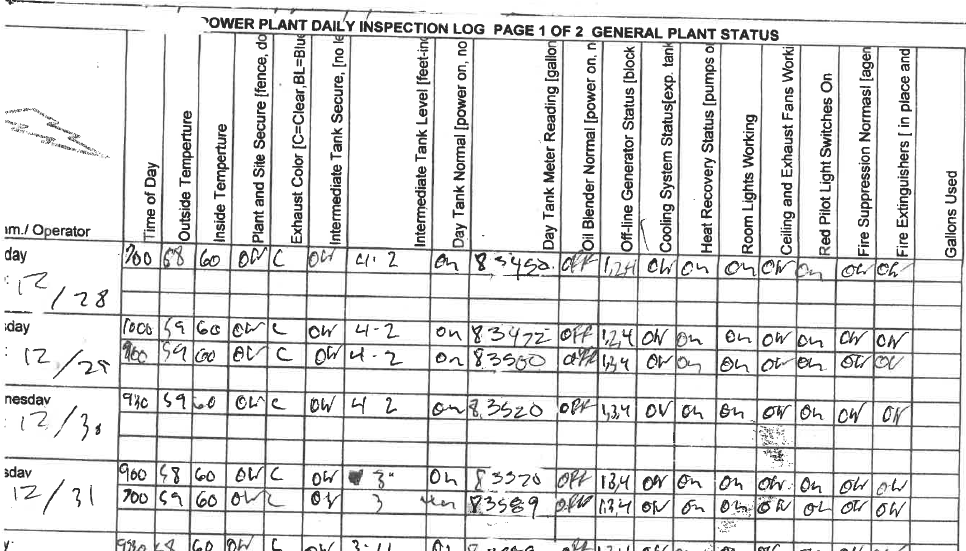 POWER PLANT DAILY INSPECTION LOG PAGE 1 OF 2 GENERAL PLANT STATUS
m./ Operator
Time of Day
Outside Temperture
Inside Temperture
Plant and Site Secure [fence, do
Exhaust Color [C=Clear,BL=Blue
Intermediate Tank Secure, [no le
Intermediate Tank Level [feet-inc
Day Tank Normal [power on, no
Day Tank Meter Reading [gallon
Oil Blender Normal [power on, n
Off-line Generator Status [block
Cooling System Status[exp. tank
Heat Recovery Status [pumps o
Room Lights Working
Ceiling and Exhaust Fans Worki
Red Pilot Light Switches On
Fire Suppression Normasl [agen
Fire Extinguishers [ in place and
Gallons Used
day 700 58 60 OW C OW 4-2 on 83450 off 1,2,4 OW On On OW On OW OW
12/28
sday 1000 59 60 OW C OW 4-2 on 83472 off 1,2,4 OW On On OW On OW OW
12/29 900 59 60 OW C OW 4-2 on 83500 off 1,3,4 OW On On OW On OW OW
nesday 930 59 60 OW C OW 4 2 on 83520 off 1,3,4 OW On On OW On OW OW
12/30
sday 900 58 60 OW C OW 3" On 83570 off 1,3,4 OW On On OW On OW OW
12/31 700 59 60 OW C OW 3 83589 off 1,3,4 OW On On OW On OW OW
930 58 60 OW C OW 3-11 On